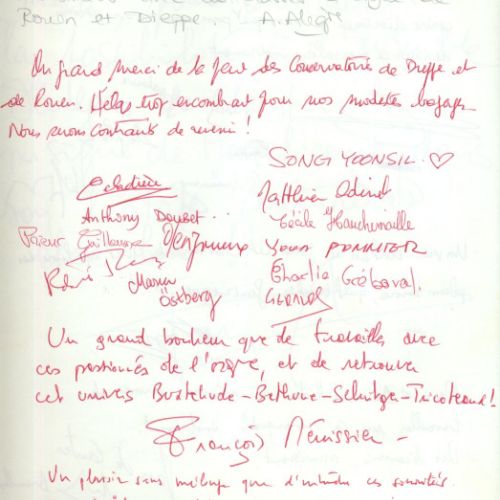 Rouen et Dieppe A. Alegre
Un grand merci de la part des Conservatoires de Dieppe et
de Rouen. Hélas trop encombrant pour nos modestes bagages.
Nous serons contraints de revenir !
SONG YEONSIL ♡
Matthieu Odinet
Anthony Douset ..
Cécile Hauchemaille
Guillaume Benjamin YOUN PONNITER
Rémi Manon Charlie Grébaval.
Östberg
Un grand bonheur que de travailler avec
ces passionnés de l'orgue, et de retrouver
cet univers Buxtehude - Béthune - Schnitger - Tricoteaux !
François Ménissier -
Un plaisir sans mélange que d'entendre ces sonorités.